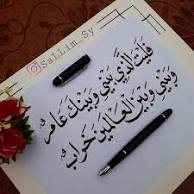 Sallim_Sy
فَلَيْتَ الَّذِي بَيْنِي وَبَيْنَكَ عَامِرٌ
وَبَيْنِي وَبَيْنَ الْعَالَمِينَ خَرَابُ